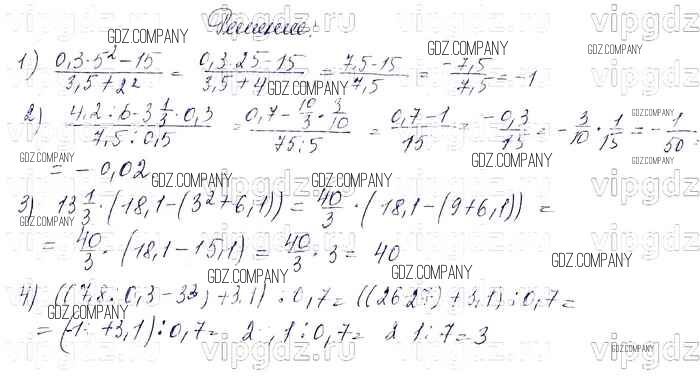 Решение:
1) (0,3·5²-15)/(3,5+2²) = (0,3·25-15)/(3,5+4) = (7,5-15)/7,5 = -7,5/7,5 = -1
2) (4,2:6-3 1/3·0,3)/(7,5:0,5) = (0,7-10/3·3/10)/(75:5) = (0,7-1)/15 = -0,3/15 = -3/10·1/15 = -1/50 =
= -0,02
3) 13 1/3·(18,1-(3²+6,1)) = 40/3·(18,1-(9+6,1)) =
= 40/3·(18,1-15,1) = 40/3·3 = 40
4) ((7,8:0,3-3³)+3,1):0,7 = ((26-27)+3,1):0,7 =
= (-1+3,1):0,7 = 2,1:0,7 = 21:7 = 3
GDZ.COMPANY
vipgdz.ru